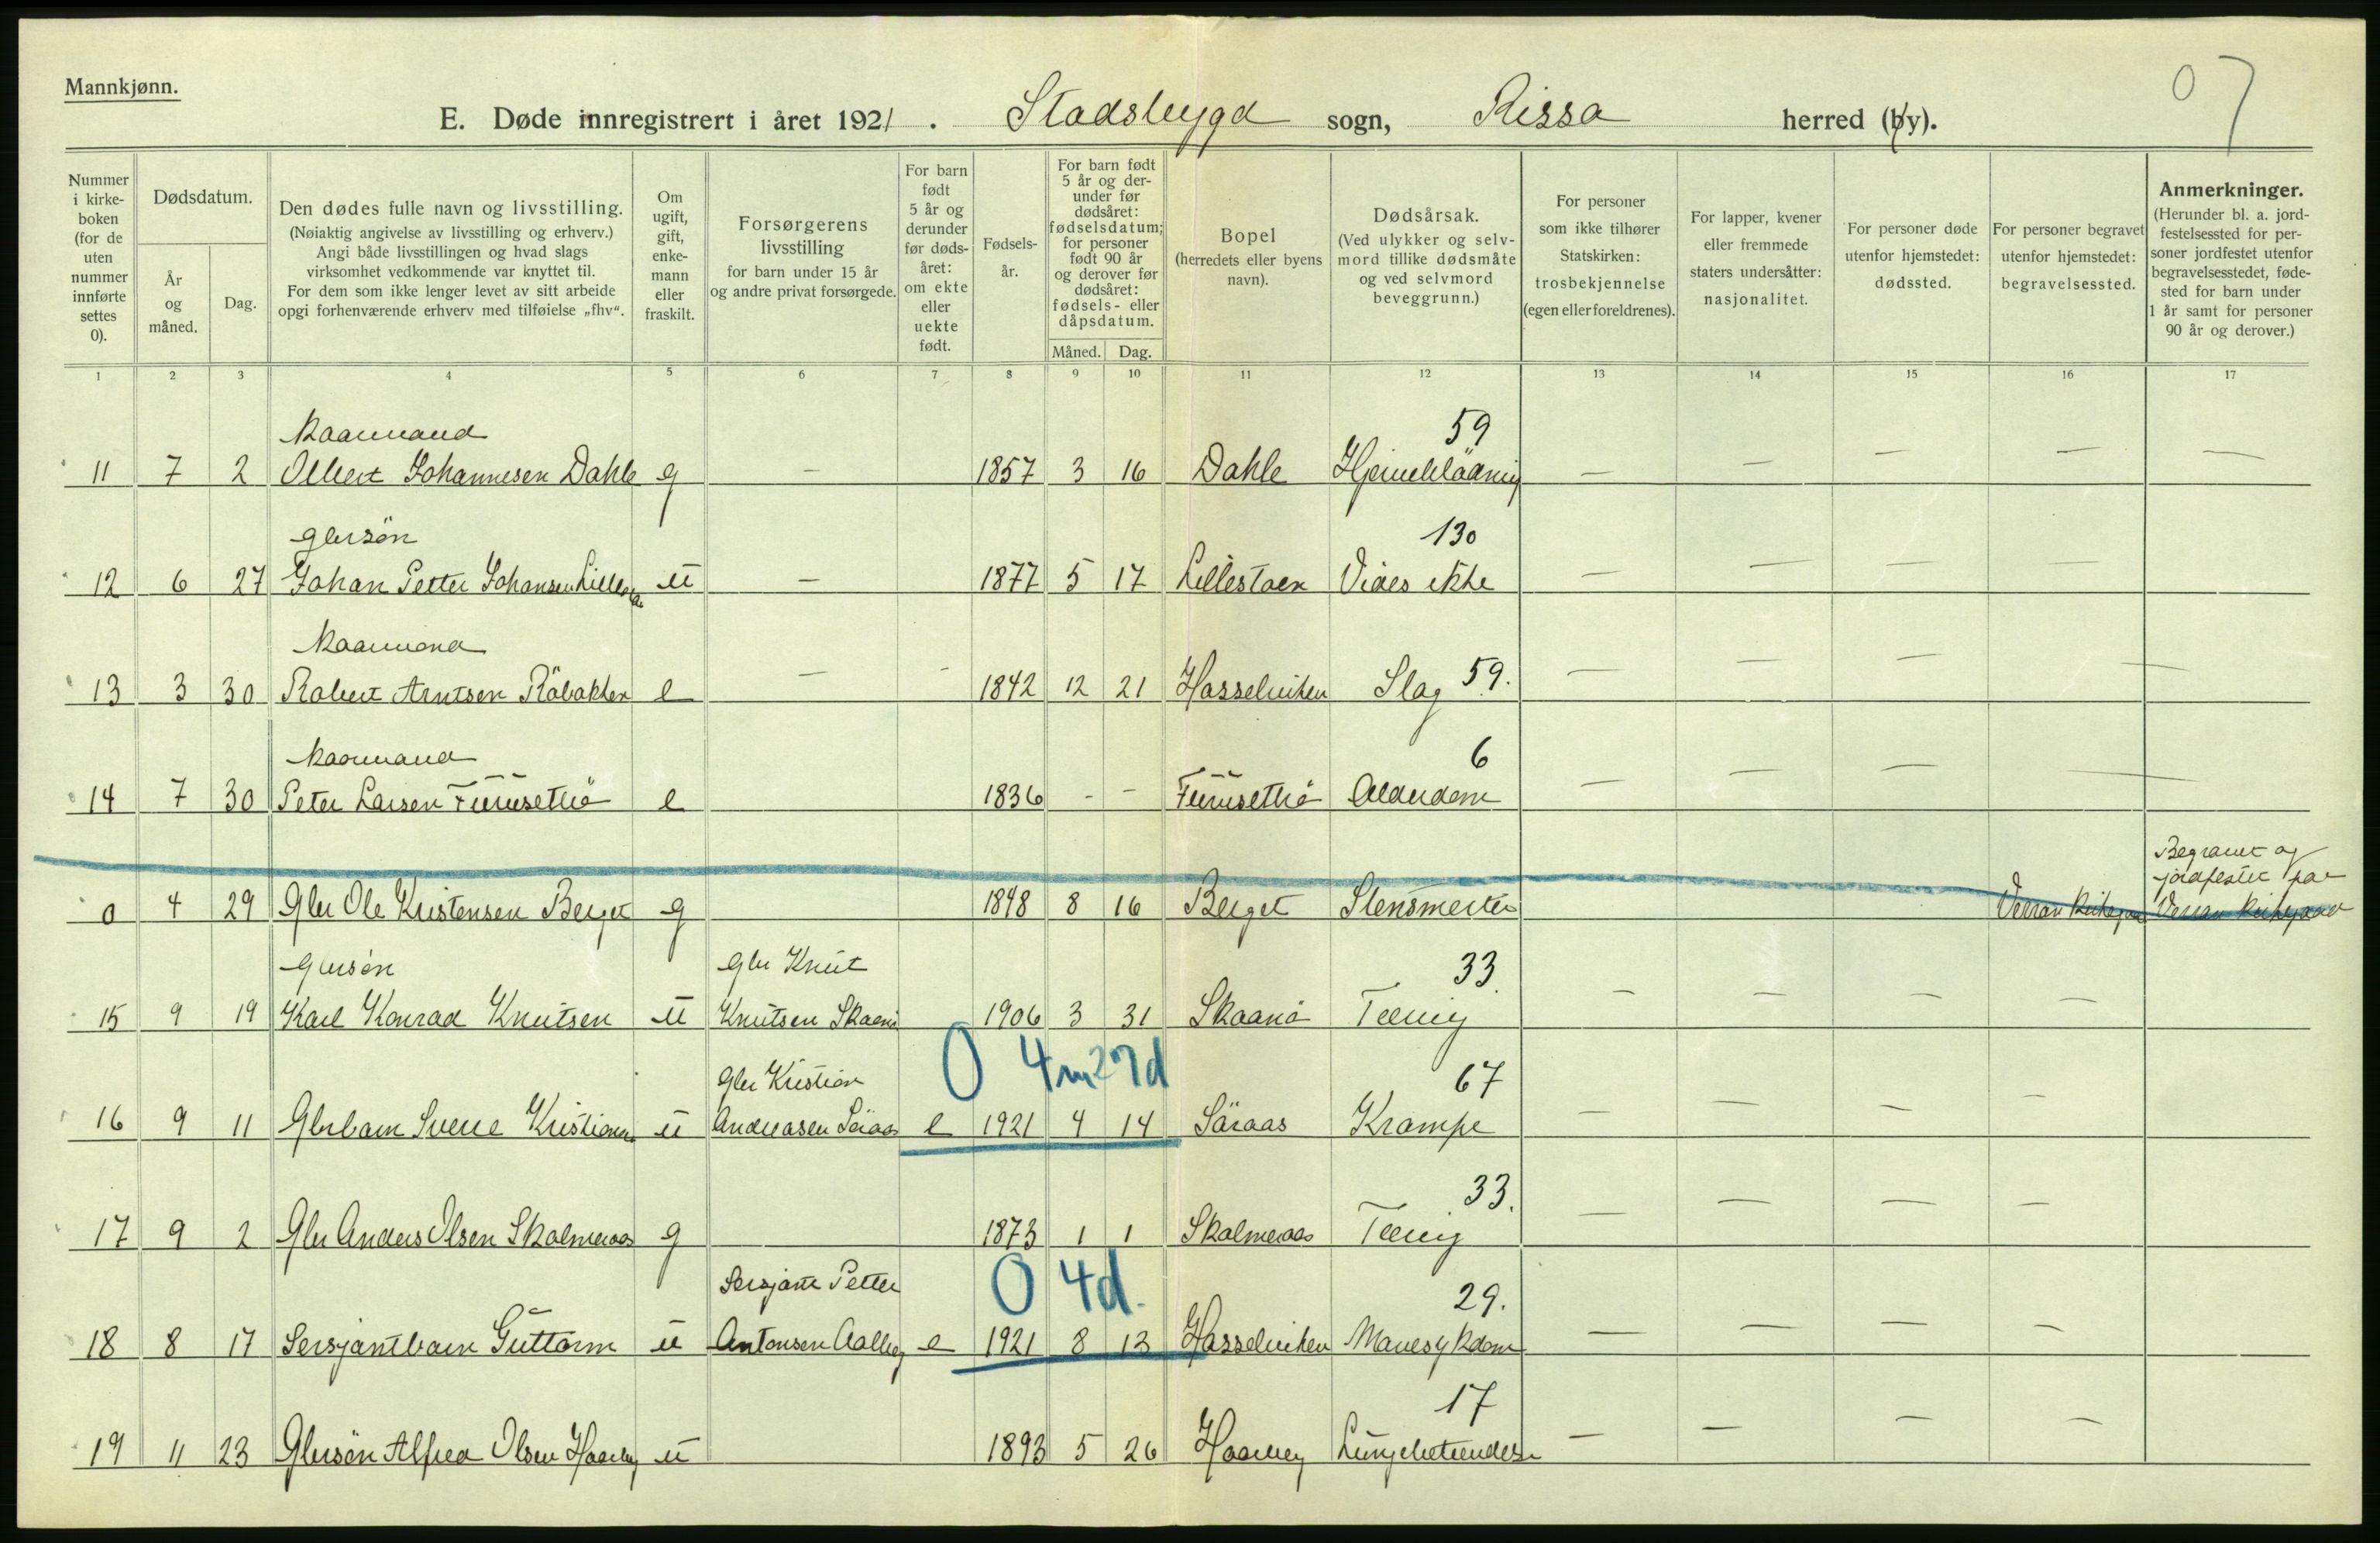 Mannkjønn.
07
E. Døde innregistrert i året 1921. Stadsbygd sogn, Rissa herred (by).
Nummer i kirkeboken (for de uten nummer innførte settes 0).
Dødsdatum.
År og måned.
Dag.
Den dødes fulle navn og livsstilling.
(Nøiaktig angivelse av livsstilling og erhverv.)
Angi både livsstillingen og hvad slags
virksomhet vedkommende var knyttet til.
For dem som ikke lenger levet av sitt arbeide
opgi forhenværende erhverv med tilføielse „fhv“.
Om ugift, gift, enkemann eller fraskilt.
Forsørgerens livsstilling
for barn under 15 år
og andre privat forsørgede.
For barn født 5 år og derunder før dødsåret: om ekte eller uekte født.
Fødselsår.
For barn født 5 år og derunder før dødsåret: fødselsdatum; for personer født 90 år og derover før dødsåret: fødsels- eller dåpsdatum.
Måned. Dag.
Bopel
(herredets eller byens navn).
Dødsårsak.
(Ved ulykker og selvmord tillike dødsmåte og ved selvmord beveggrunn.)
For personer som ikke tilhører Statskirken: trosbekjennelse (egen eller foreldrenes).
For lapper, kvener eller fremmede staters undersåtter: nasjonalitet.
For personer døde utenfor hjemstedet: dødssted.
For personer begravet utenfor hjemstedet: begravelsessted.
Anmerkninger.
(Herunder bl. a. jordfestelsessted for personer jordfestet utenfor begravelsesstedet, fødested for barn under 1 år samt for personer 90 år og derover.)
1 2 3 4 5 6 7 8 9 10 11 12 13 14 15 16 17
Kaarmand 59
11 7 2 Olbert Johannesen Dahle g — 1857 3 16 Dahle Hjerneblödning — — — — —
gbrsön 130
12 6 27 Johan Petter Johansen Lillesta u — 1877 5 17 Lillestaen Vides ikke — — — —
Kaarmand
13 3 30 Robert Arntsen Råbakken e — - 1842 12 21 Hasselviken Slag 59. — — — —
Kaarmand 6
14 7 30 Peter Larsen Furusethö e 1836 - - Furusethö Alderdom — — — —
Begravet og
jordfestet paa
0 4 29 Gbr Ole Kristensen Berget g 1848 8 16 Berget Stensmerter Verran Kirkegaard Verran Kirkegaard
Gbrsön gbr Knut 33.
15 9 19 Karl Konrad Knutsen u Knutsen Skaanö 1906 3 31 Skaanö Tæring — — — —
0 4m 27d
Gbr Kristian 67
16 9 11 Gbrbarn Sverre Kristiansen u Andreasen Säraas e 1921 4 14 Säraas Krampe — — — —
33.
17 9 2 Gbr Anders Olsen Skalmeraas g 1873 1 1 Skalmeraas Tæring — — — —
0 4d.
Sersjant Petter 29.
18 8 17 Sersjantbarn Guttorm u Antonsen Aalberg e 1921 8 13 Hasselviken Mavesykdom — — — —
17
19 11 23 Gbrsön Alfred Olsen Haarberg u 1893 5 26 Haarberg Lungebetændelse — — — —